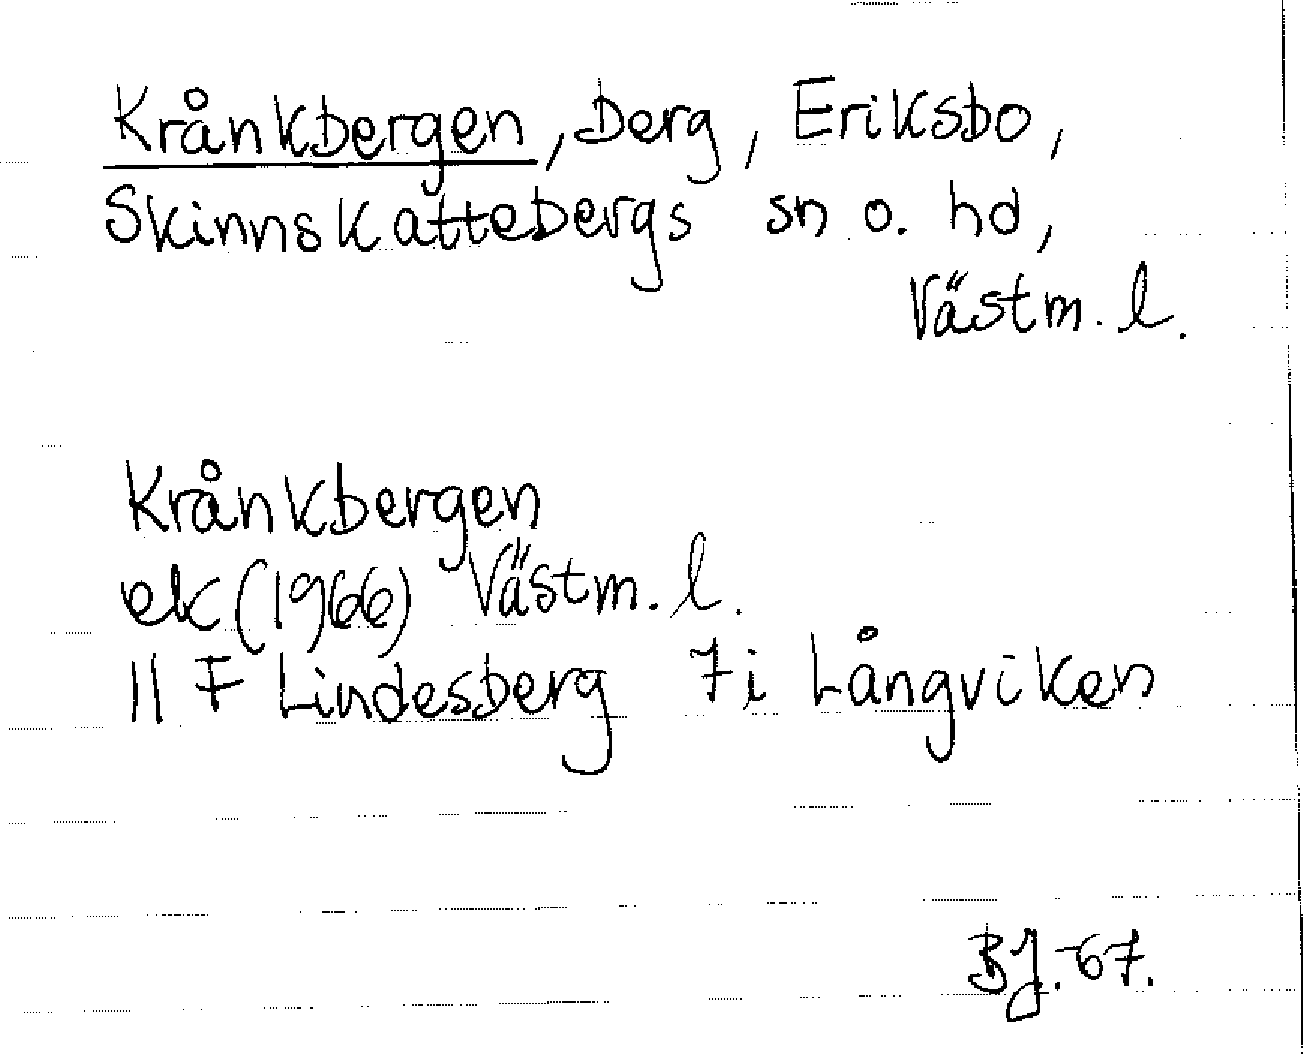 Krånkbergen, berg, Eriksbo,
Skinnskattebergs sn o. hd,
Västm. l.
Krånkbergen
ek (1966) Västm. l.
11 F Lindesberg 7i Långviken
BJ. -67.